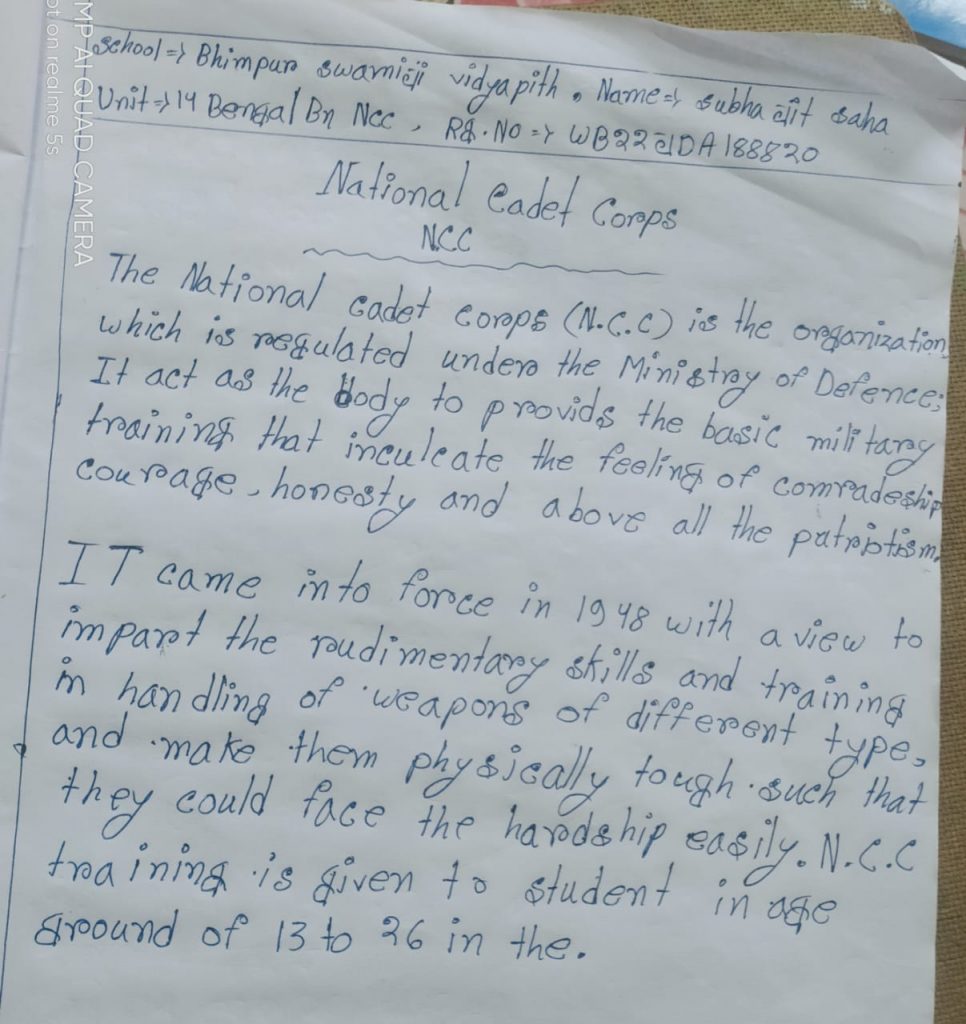 School => Bhimpur swamiji vidyapith, Name => subhajit saha
Unit => 14 Bengal Bn Ncc, Rg. No => WB22JDA188820
National Cadet Corps
NCC
The National cadet corps (N.C.C) is the organization
which is regulated under the Ministry of Defence;
It act as the body to provids the basic military
training that inculcate the feeling of comradeship
courage, honesty and above all the patriotism.
IT came into force in 1948 with a view to
impart the rudimentary skills and training
in handling of weapons of different type,
and make them physically tough such that
they could face the hardship easily. N.C.C
training is given to student in age
ground of 13 to 26 in the.
MP AI QUAD CAMERA
ot on realme 5s